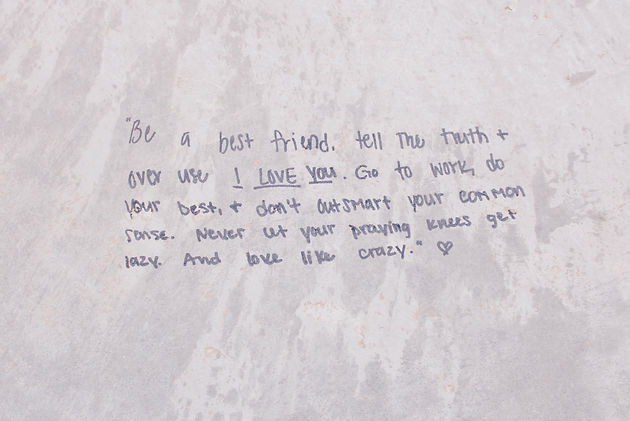 "Be a best friend, tell the truth +
over use I LOVE YOU. Go to work, do
your best, + don't outsmart your common
sense. Never let your praying knees get
lazy. And love like crazy." ♡